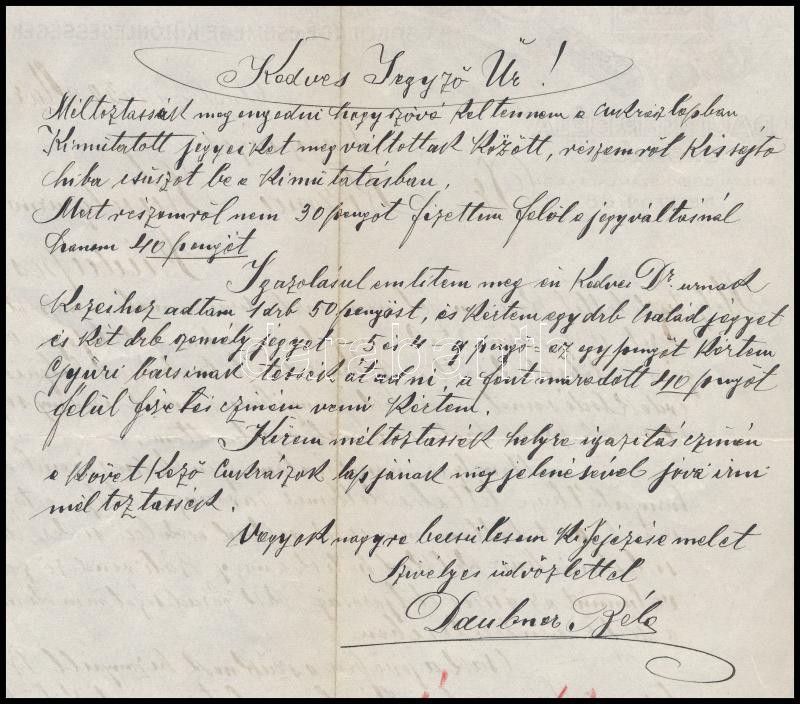 Kedves Jegyző Úr!
Méltoztassák megengedni hogy szóvá kel tennem a cukrász lapban
Kimutatott jegyeiket megváltottak között, részemről kis sajtó
hiba csúszot be a kimutatásban,
Mert részemről nem 30 pengőt fizettem felől a jegyváltásnál
hanem 40 pengőt
Igazolásul emlitem meg én Kedves Dr. urnak
Kezeihez adtam 1 drb 50 pengőst, és kértem egy drb Család jegyet
és két drb személy jegyet - 5 és 4 - 9 pengő = az egy pengőt kértem
Gyuri bácsinak tessék átadni, a font maradott 40 pengőt
felül fizetési czimén venni kértem.
Kérem méltoztassék helyre igazitás czimén
a Követ Kező Cukrászok lapjának meg jelenésével jóvá irni
méltoztassék.
Vagyok nagyra becsülésem kifejezése melet
Szivélyes üdvözlettel
Daubner Béla
darabanth